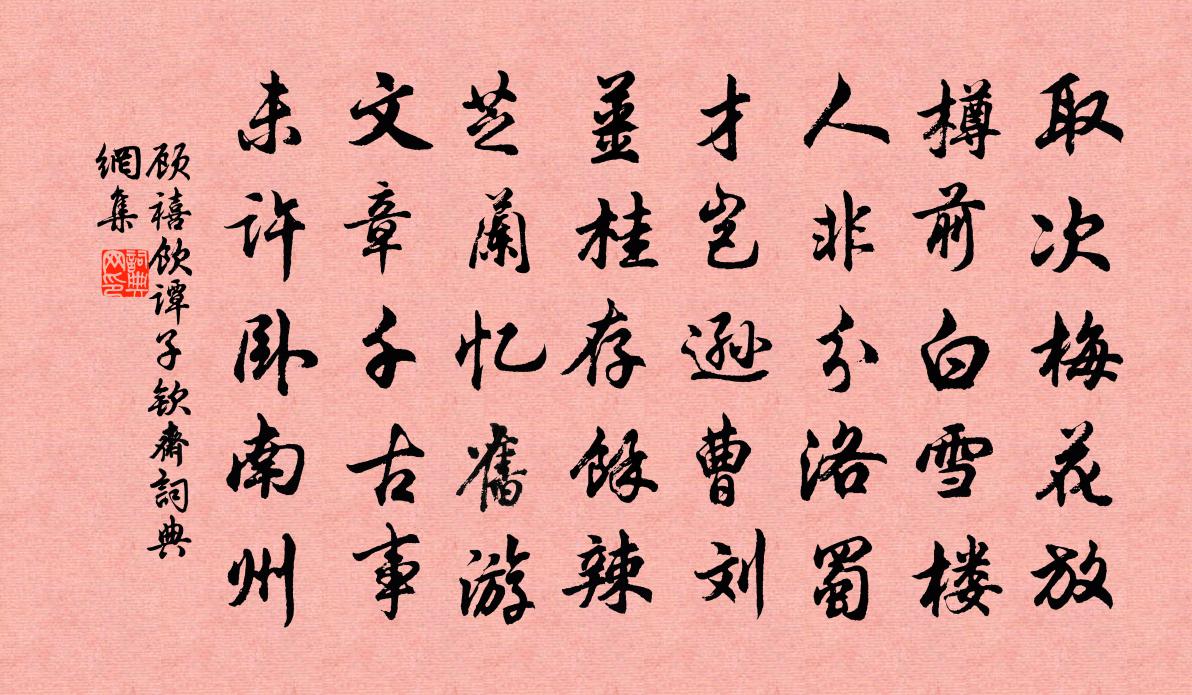 取次梅花放
樽前白雪楼
人非分洛蜀
才岂逊曹刘
薑桂存馀辣
芝蘭忆舊游
文章千古事
未许卧南州
顾禧饮谭子钦斋詞典
網集
詞典网印